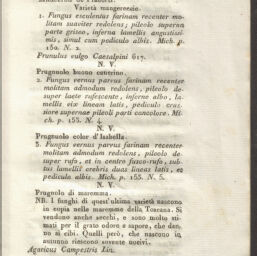 Varietà mangereccie.
1. Fungus esculentus farinam recenter mo-
litam suaviter redolens; pileolo superna
parte griseo, inferna lamellis angustissi-
mis, simul cum pediculo albis. Mich. p.
150. N. 2.
Prunulus vulgo Caesalpini 617.
N. V.
Prugnuolo buono
2. Fungus vernus parvus farinam recenter
molitam admodum redolens, pileolo de-
super lacte rufescente, inferne albo, la-
mellis vix lineam latis, pediculo cras-
siore supernae pileoli parti concolore. Mi-
ch. p. 155. N. 4.
N. V.
Prugnuolo color d'Isabella.
3. Fungus vernus parvus farinam recenter
molitam admodum redolens, pileolo de-
super rufo, et in centro fusco-rufo, sub-
tus lamellis crebris duas lineas latis, et
pediculo albis. Mich. p. 155. N. 5.
N. V.
Prugnolo di maremma.
NB. I funghi di quest'ultima varietà nascono
in copia nelle maremme della Toscana. Si
vendono anche secchi, e sono molto sti-
mati per il grato odore e sapore, che dan-
no ai cibi. Quelli però, che nascono in
autunno riescono sovente nocivi.
Agaricus Campestris Lin.